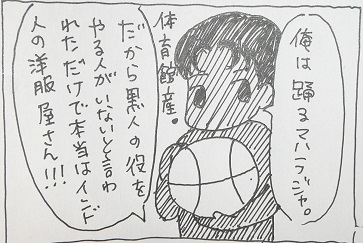 俺は踊るマハラジャ。
体育館産。
だから黒人の役を
やる人がいないと言わ
れただけで本当はインド
人の洋服屋さん!!!